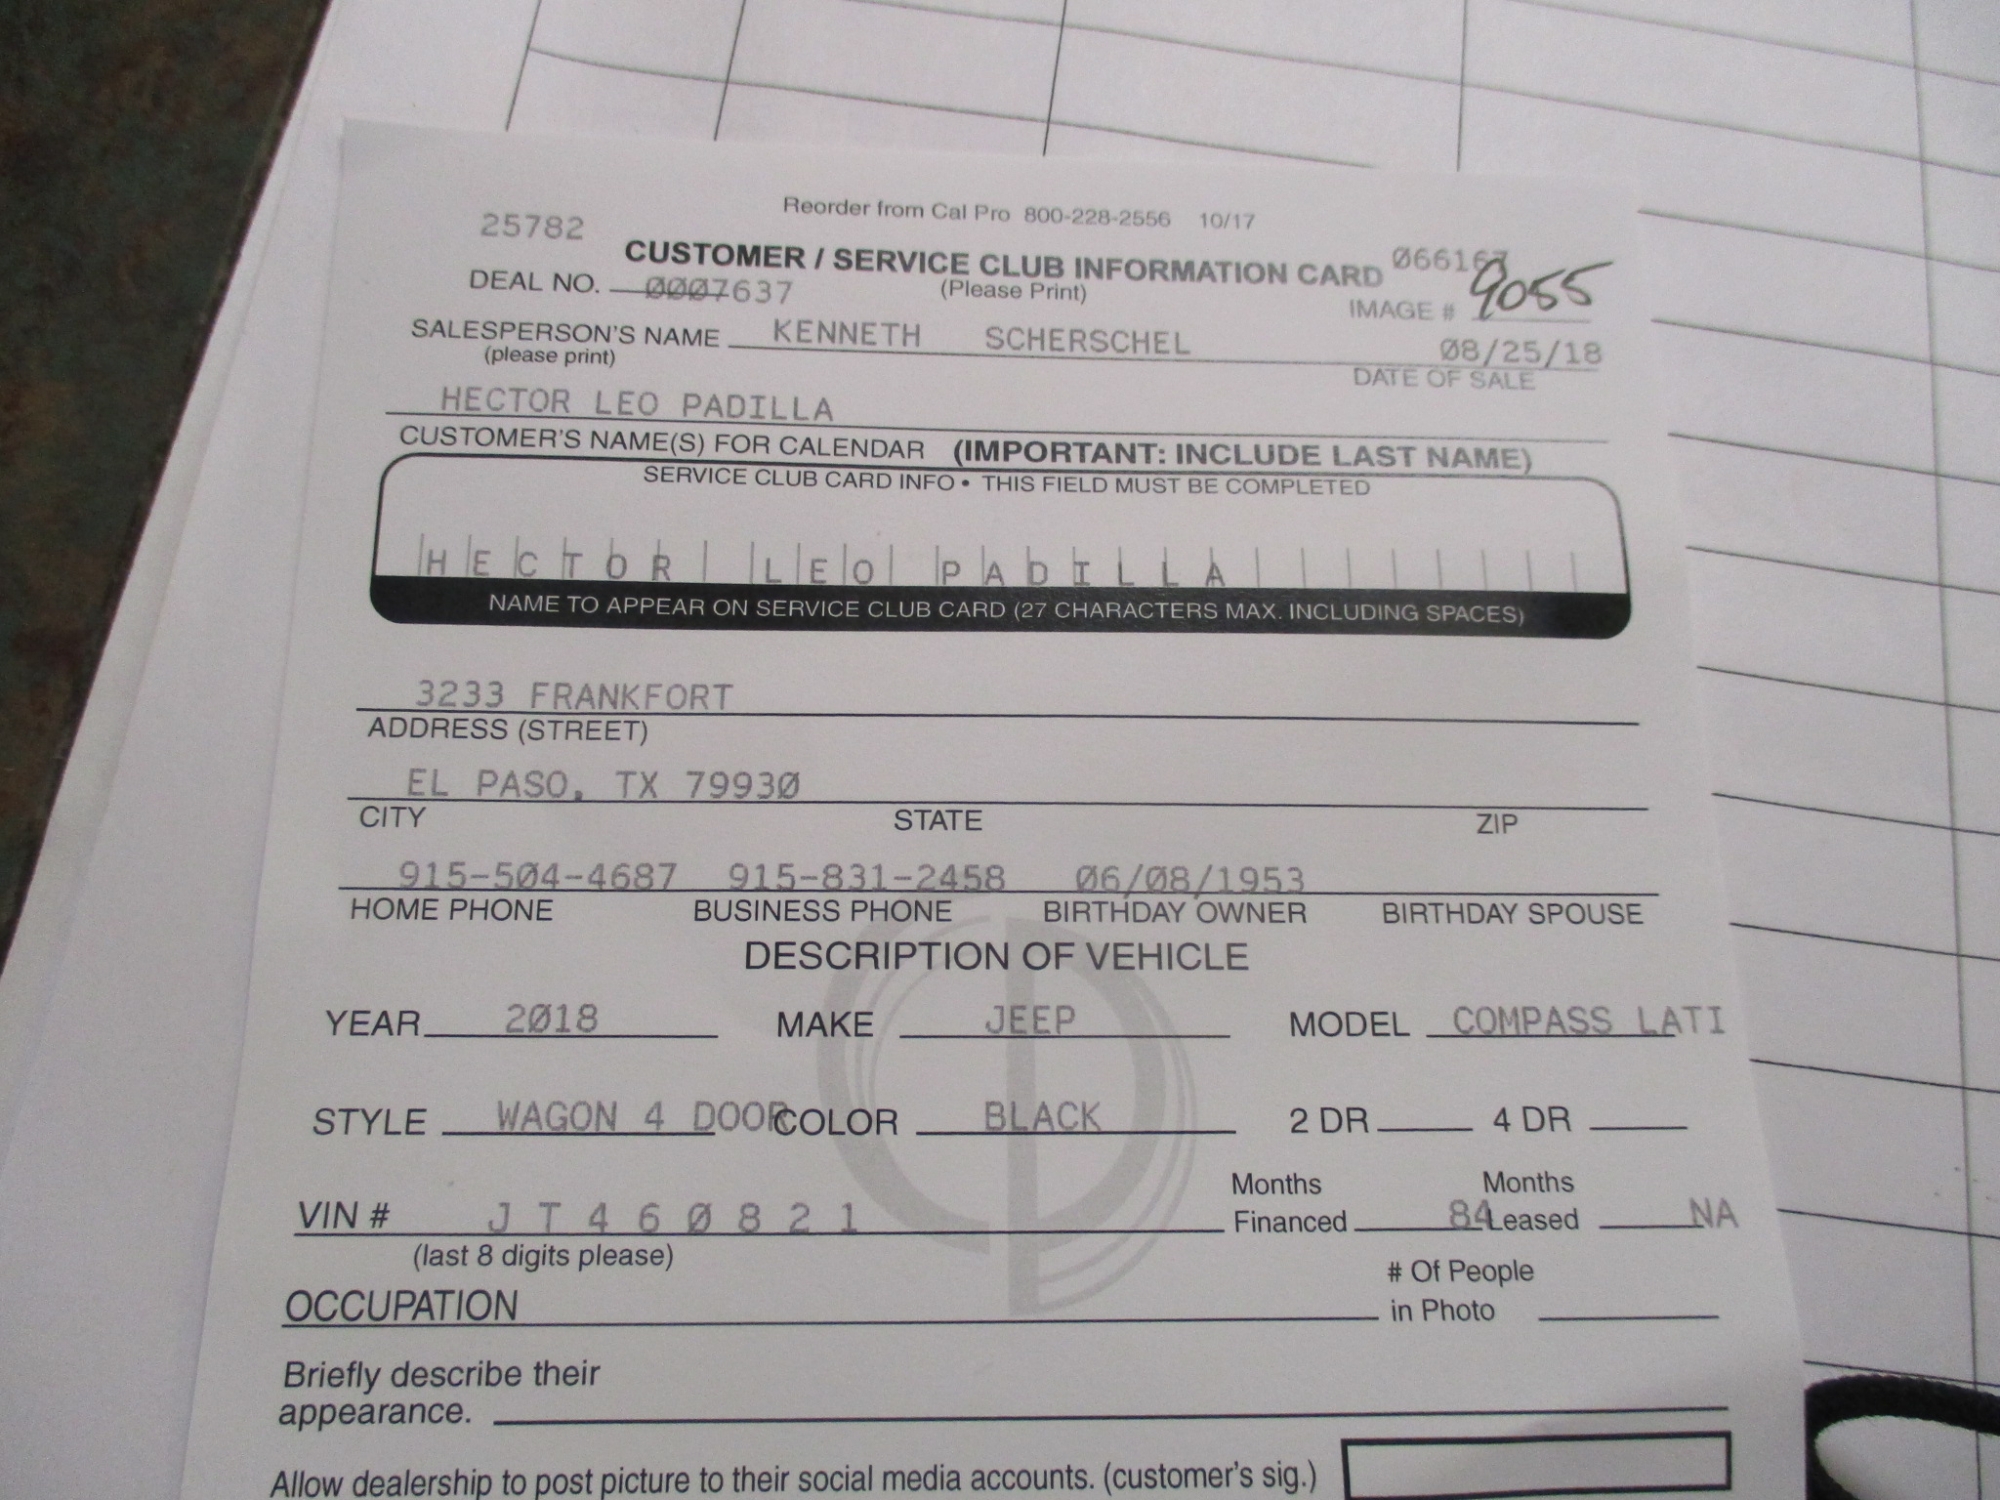 Reorder from Cal Pro 800-228-2556 10/17
25782
CUSTOMER / SERVICE CLUB INFORMATION CARD
(Please Print)
DEAL NO. 0007637
IMAGE # 9055
SALESPERSON'S NAME KENNETH SCHERSCHEL
(please print)
08/25/18
DATE OF SALE
HECTOR LEO PADILLA
CUSTOMER'S NAME(S) FOR CALENDAR (IMPORTANT: INCLUDE LAST NAME)
SERVICE CLUB CARD INFO • THIS FIELD MUST BE COMPLETED
HECTOR LEO PADILLA
NAME TO APPEAR ON SERVICE CLUB CARD (27 CHARACTERS MAX. INCLUDING SPACES)
3233 FRANKFORT
ADDRESS (STREET)
EL PASO, TX 79930
CITY STATE ZIP
915-504-4687 915-831-2458 06/08/1953
HOME PHONE BUSINESS PHONE BIRTHDAY OWNER BIRTHDAY SPOUSE
DESCRIPTION OF VEHICLE
YEAR 2018 MAKE JEEP MODEL COMPASS LATI
STYLE WAGON 4 DOOR COLOR BLACK 2 DR 4 DR
VIN # JT460821 Months Financed 84 Months Leased NA
(last 8 digits please)
OCCUPATION # Of People in Photo
Briefly describe their
appearance.
Allow dealership to post picture to their social media accounts. (customer's sig.)